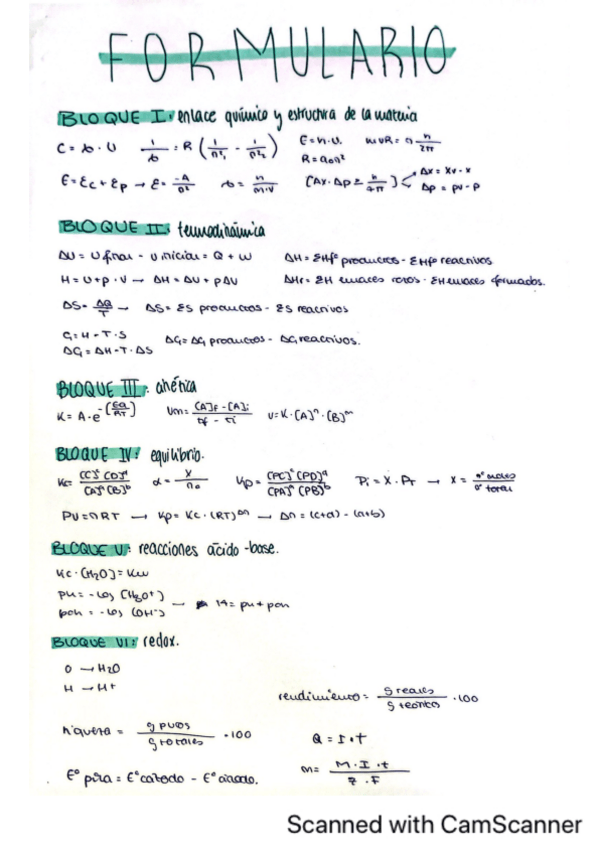 FORMULARIO
BLOQUE I: enlace químico y estructura de la materia
C = λ · υ    1/λ = R (1/n²₁ - 1/n²₂)    E = h·υ.    m·v·R = n h/2π
R = a₀n²
E = Ec + Ep → E = -A/n²    λ = h/m·v    [Δx · Δp ≥ h/4π]    Δx = xv - x
Δp = pv - p
BLOQUE II: termodinámica
ΔU = U final - U inicial = Q + W    ΔH = ΣHfº productos - ΣHfº reactivos
H = U + p · V → ΔH = ΔU + pΔV    ΔHr = ΣH enlaces rotos - ΣH enlaces formados.
ΔS = ΔQ/T → ΔS = ΣS productos - ΣS reactivos
G = H - T · S    ΔG = ΔG productos - ΔG reactivos.
ΔG = ΔH - T · ΔS
BLOQUE III: cinética
K = A · e^-(Ea/RT)    Vm = [A]f - [A]i / tf - ti    v = K · [A]ⁿ · [B]ᵐ
BLOQUE IV: equilibrio.
Kc = [C]ᶜ [D]ᵈ / [A]ᵃ [B]ᵇ    α = x/n₀    Kp = (PC)ᶜ (PD)ᵈ / (PA)ᵃ (PB)ᵇ    Pi = X · PT → X = nº moles / nº total
PV = nRT → Kp = Kc · (RT)^Δn → Δn = (c+d) - (a+b)
BLOQUE V: reacciones ácido-base.
Kc · [H₂O] = Kw
pH = - log [H₃O⁺]
pOH = - log [OH⁻] → 14 = pH + pOH
BLOQUE VI: redox.
O → H₂O
H → H⁺
rendimiento = g reales / g teóricos · 100
riqueza = g puros / g totales · 100    Q = I · t
Eº pila = Eº cátodo - Eº ánodo.    m = M · I · t / z · F
Scanned with CamScanner